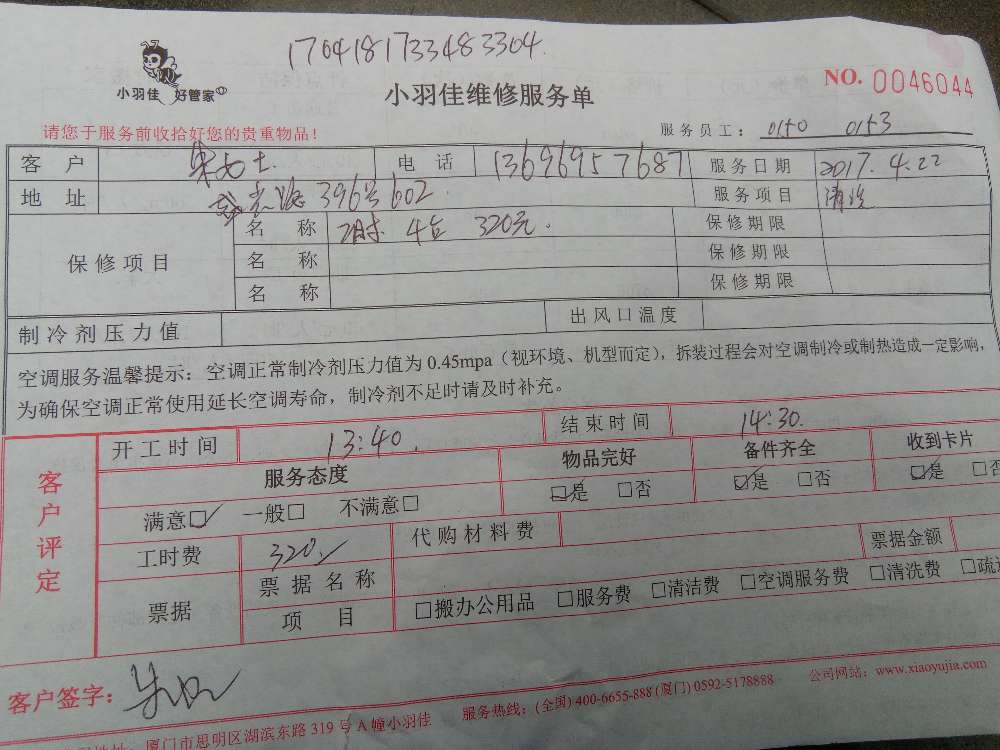 1704181733483304
小羽佳 好管家
小羽佳维修服务单
NO. 0046044
请您于服务前收拾好您的贵重物品！
服务员工： 0150 0153
客户 朱女士 电话 13696957687 服务日期 2017.4.22
地址 396号602 服务项目 清洗
保修项目 名称 4台 320元. 保修期限
名称 保修期限
名称 保修期限
制冷剂压力值 出风口温度
空调服务温馨提示：空调正常制冷剂压力值为0.45mpa（视环境、机型而定），拆装过程会对空调制冷或制热造成一定影响，
为确保空调正常使用延长空调寿命，制冷剂不足时请及时补充。
客户评定
开工时间 13:40. 结束时间 14:30.
服务态度 物品完好 备件齐全 收到卡片
满意☑ 一般□ 不满意□ ☑是 □否 ☑是 □否 ☑是 □否
工时费 320 代购材料费
票据 票据名称 票据金额
项目 □搬办公用品 □服务费 □清洁费 □空调服务费 □清洗费 □疏
客户签字：
厦门市思明区湖滨东路319号A幢小羽佳 服务热线：(全国)400-6655-888(厦门)0592-5178888 公司网站：www.xiaoyujia.com